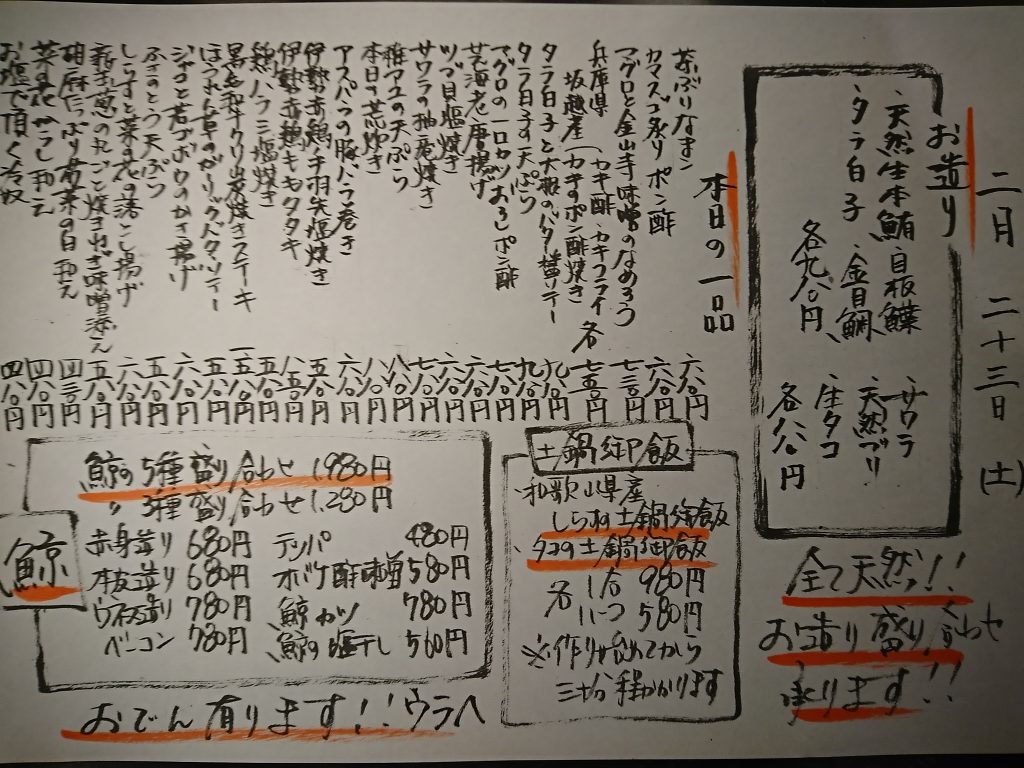 二月二十三日(土)
お造り
・天然生本鮪
・目板鰈
・サワラ
・天然ブリ
・タラ白子
・金目鯛
・生タコ
各九八〇円
各八八〇円
全て天然!!
お造り盛り合わせ
承ります!!
本日の一品
茶ぶりなまこ 六八〇円
カマスゴ炙りポン酢 六八〇円
マグロと金山寺味噌のなめろう 七三〇円
兵庫県
坂越産(カキ酢・カキフライ
カキのポン酢焼き 各七五〇円
タラ白子と大根のバター醤油ソテー 九八〇円
タラ白子の天ぷら 九八〇円
マグロの一口カツおろしポン酢 七八〇円
芝海老唐揚げ 六八〇円
ツブ貝塩焼き
サワラの柚庵焼き 七八〇円
稚アユの天ぷら 八八〇円
本日の荒炊き 八八〇円
アスパラの豚バラ巻き 六八〇円
伊勢赤鶏手羽先塩焼き 五八〇円
伊勢赤鶏モモタタキ 八五〇円
鶏ハラミ塩焼き 五八〇円
黒毛和牛クリ炭焼きステーキ
ほうれん草のガーリックバターソテー 五八〇円
ジャコと若ゴボウのかき揚げ 六八〇円
ふきのとう天ぷら 五八〇円
しらすと菜の花の落とし揚げ 六八〇円
新玉葱の丸ごと焼き 味噌添え 五八〇円
胡麻たっぷり 白和え 四三〇円
菜の花からし和え 四八〇円
お塩で頂く冷奴 四八〇円
土鍋御飯
・和歌山県産
しらすの土鍋御飯
・タコの土鍋御飯
各 1合 980円
ハーフ 580円
※作り始めてから
三十分程かかります
鯨
鯨の5種盛り合わせ 1,980円
〃 3種盛り合わせ 1,280円
赤身造り 680円
本皮造り 680円
ウネス造り 780円
ベーコン 780円
テッパ 480円
オバケ酢味噌 580円
鯨カツ 780円
鯨の塩干し 560円
おでん有ります!!ウラへ